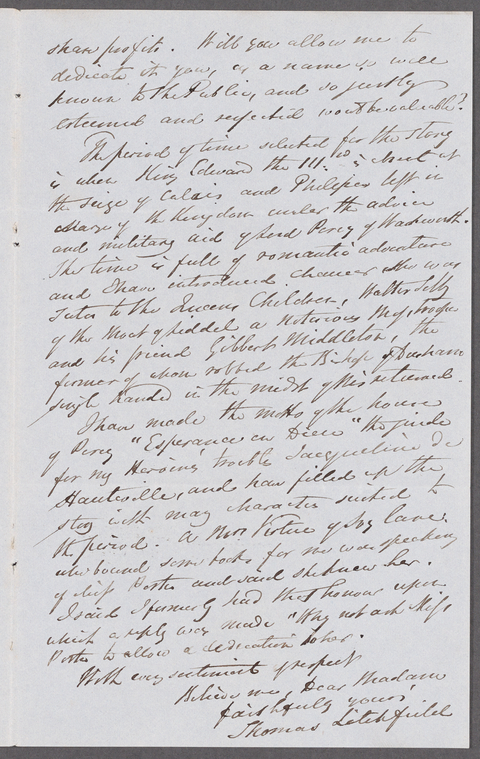 share profits. Will you allow me to
dedicate it you, as a name so well
known to the Public, and so justly
esteemed and respected would be valuable?
The period of time selected for the story
is when King Edward the IIIrd is absent at
the seige of Calais and Philippa left in
charge of the Kingdom under the advice
and military aid of Lord Percy of Warkworth.
The time is full of romantic adventure
and I have introduced Chaucer who was
Tutor to the Queens Children, Walter Selby
of the Moat of Seddel a notorious Moss trooper
and his friend Gilbert Middleton, the
former of whom robbed the Bishop of Durham
single handed in the midst of his retainers.
I have made the motto of the house
of Percy "Esperance en Dieu" the guide
for my Heroine's trouble Jacqueline de
Hauteville, and have filled up the
story with many characters suited to
the period. A Mrs Virtue of Ivy Lane
who bound some books for me was speaking
of Miss Porter and said she knew her.
I said I formerly had that honour upon
which a reply was made "Why not ask Miss
Porter to allow a dedication to her.
With every sentiment of respect
Believe me, Dear Madam
faithfully yours
Thomas Litchfield